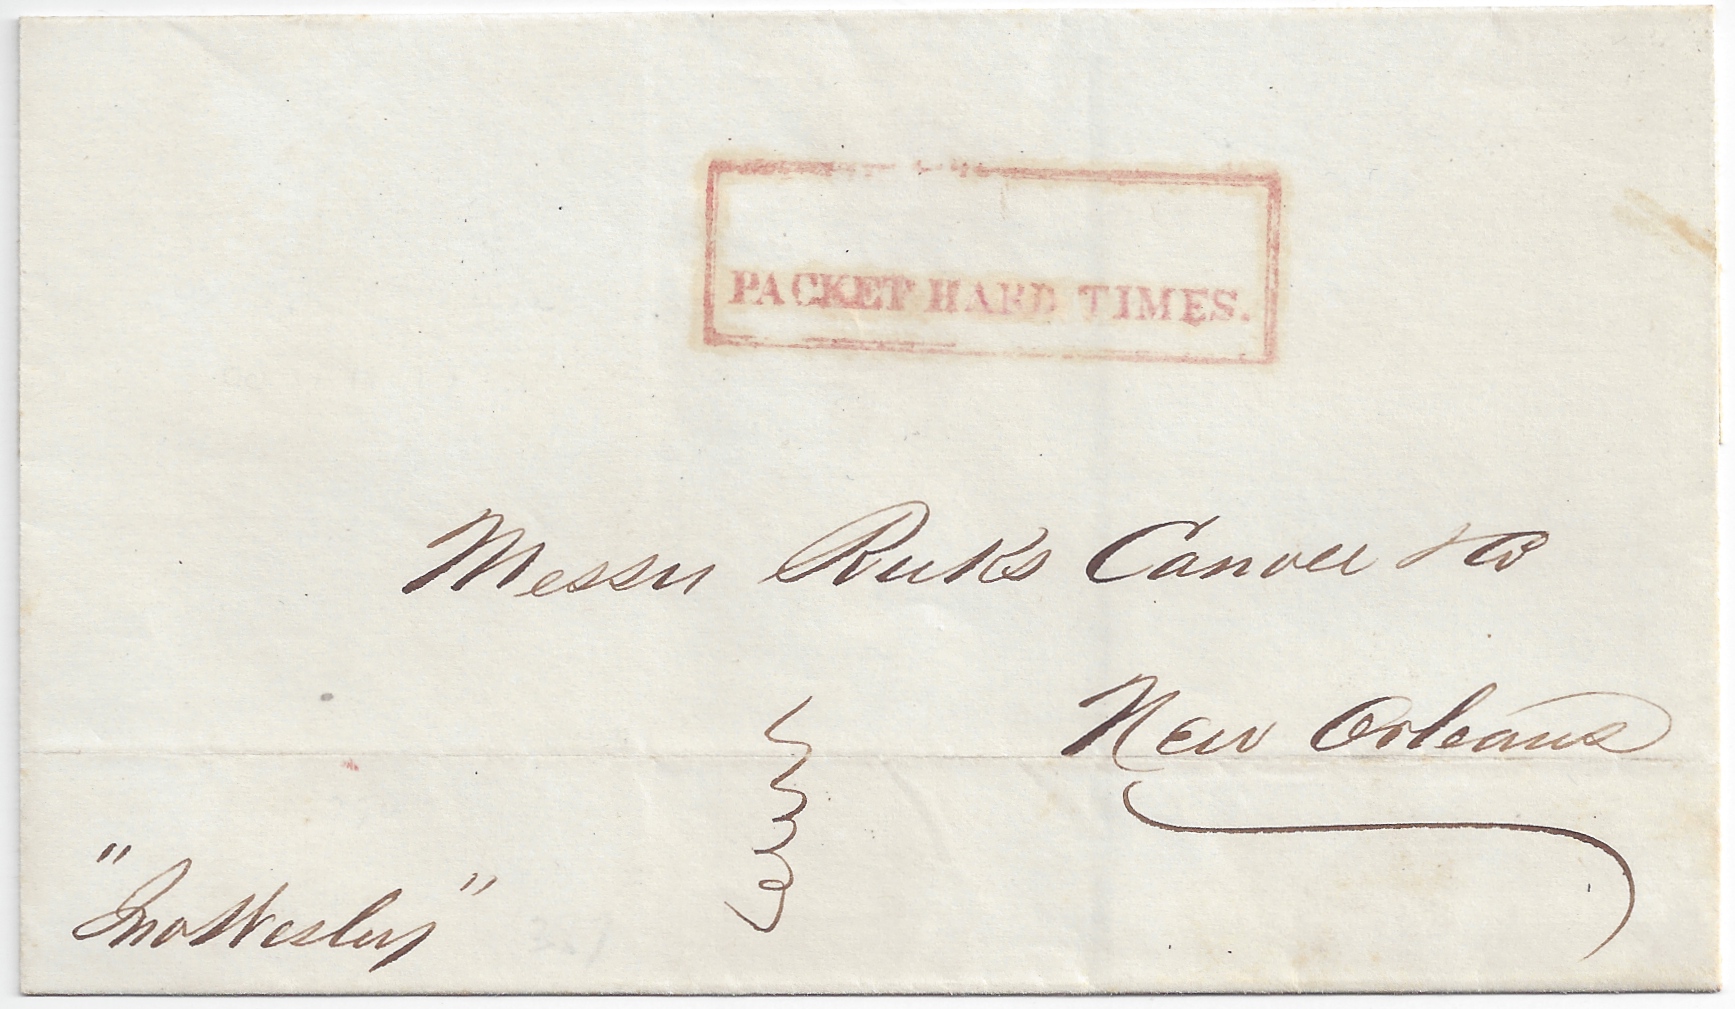 PACKET HARD TIMES.
Messrs Ruks Canoll & Co
New Orleans
"Jno Wesley"